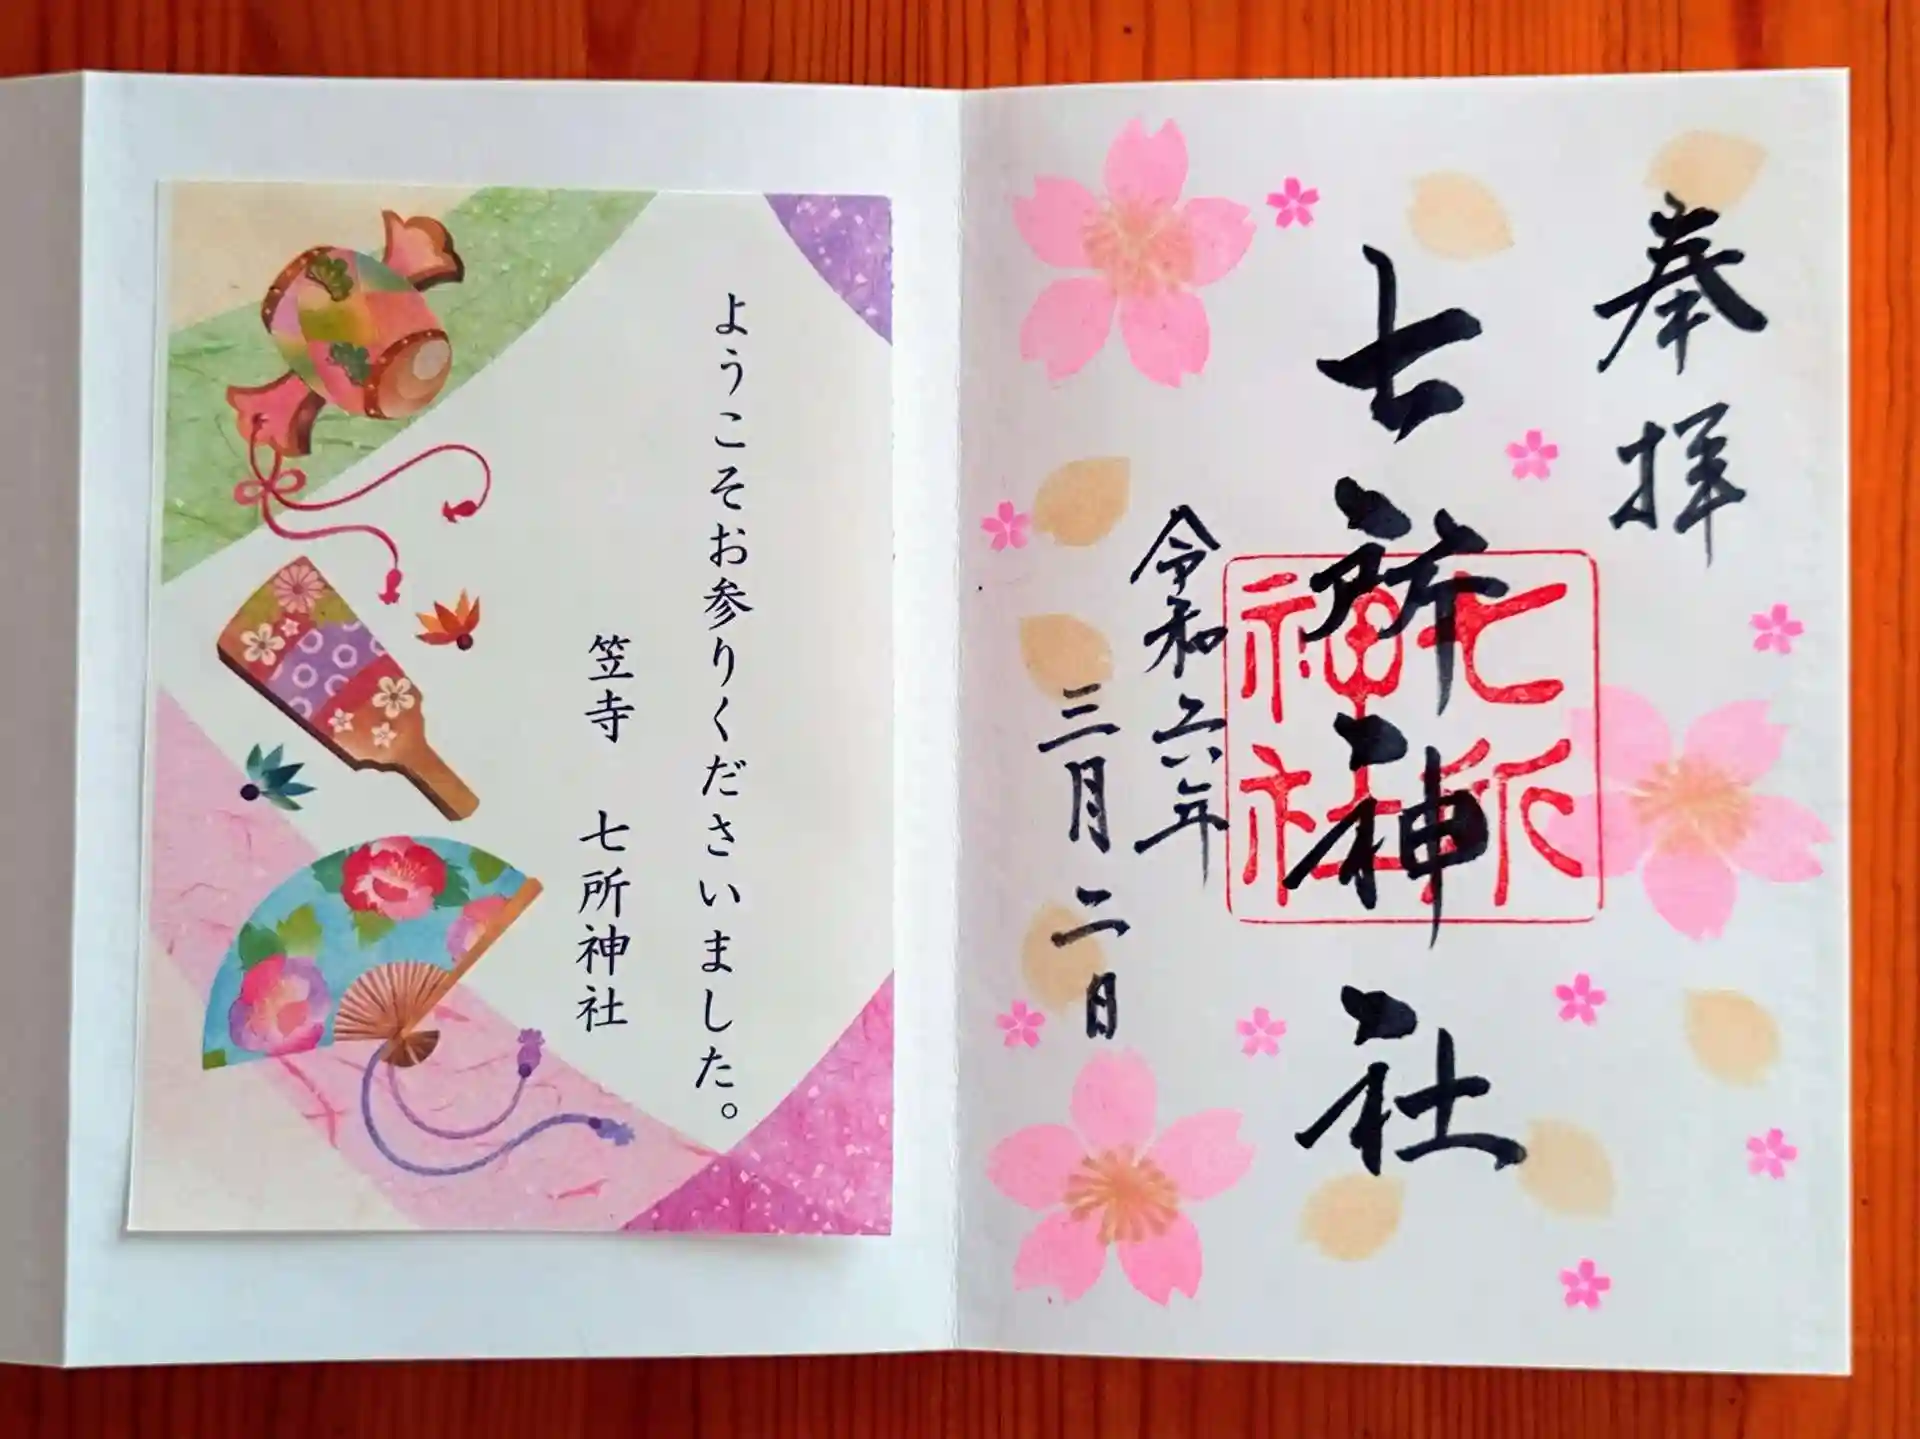 奉拝
七所神社
七所
神社
令和六年
三月二日
ようこそお参りくださいました。
笠寺 七所神社